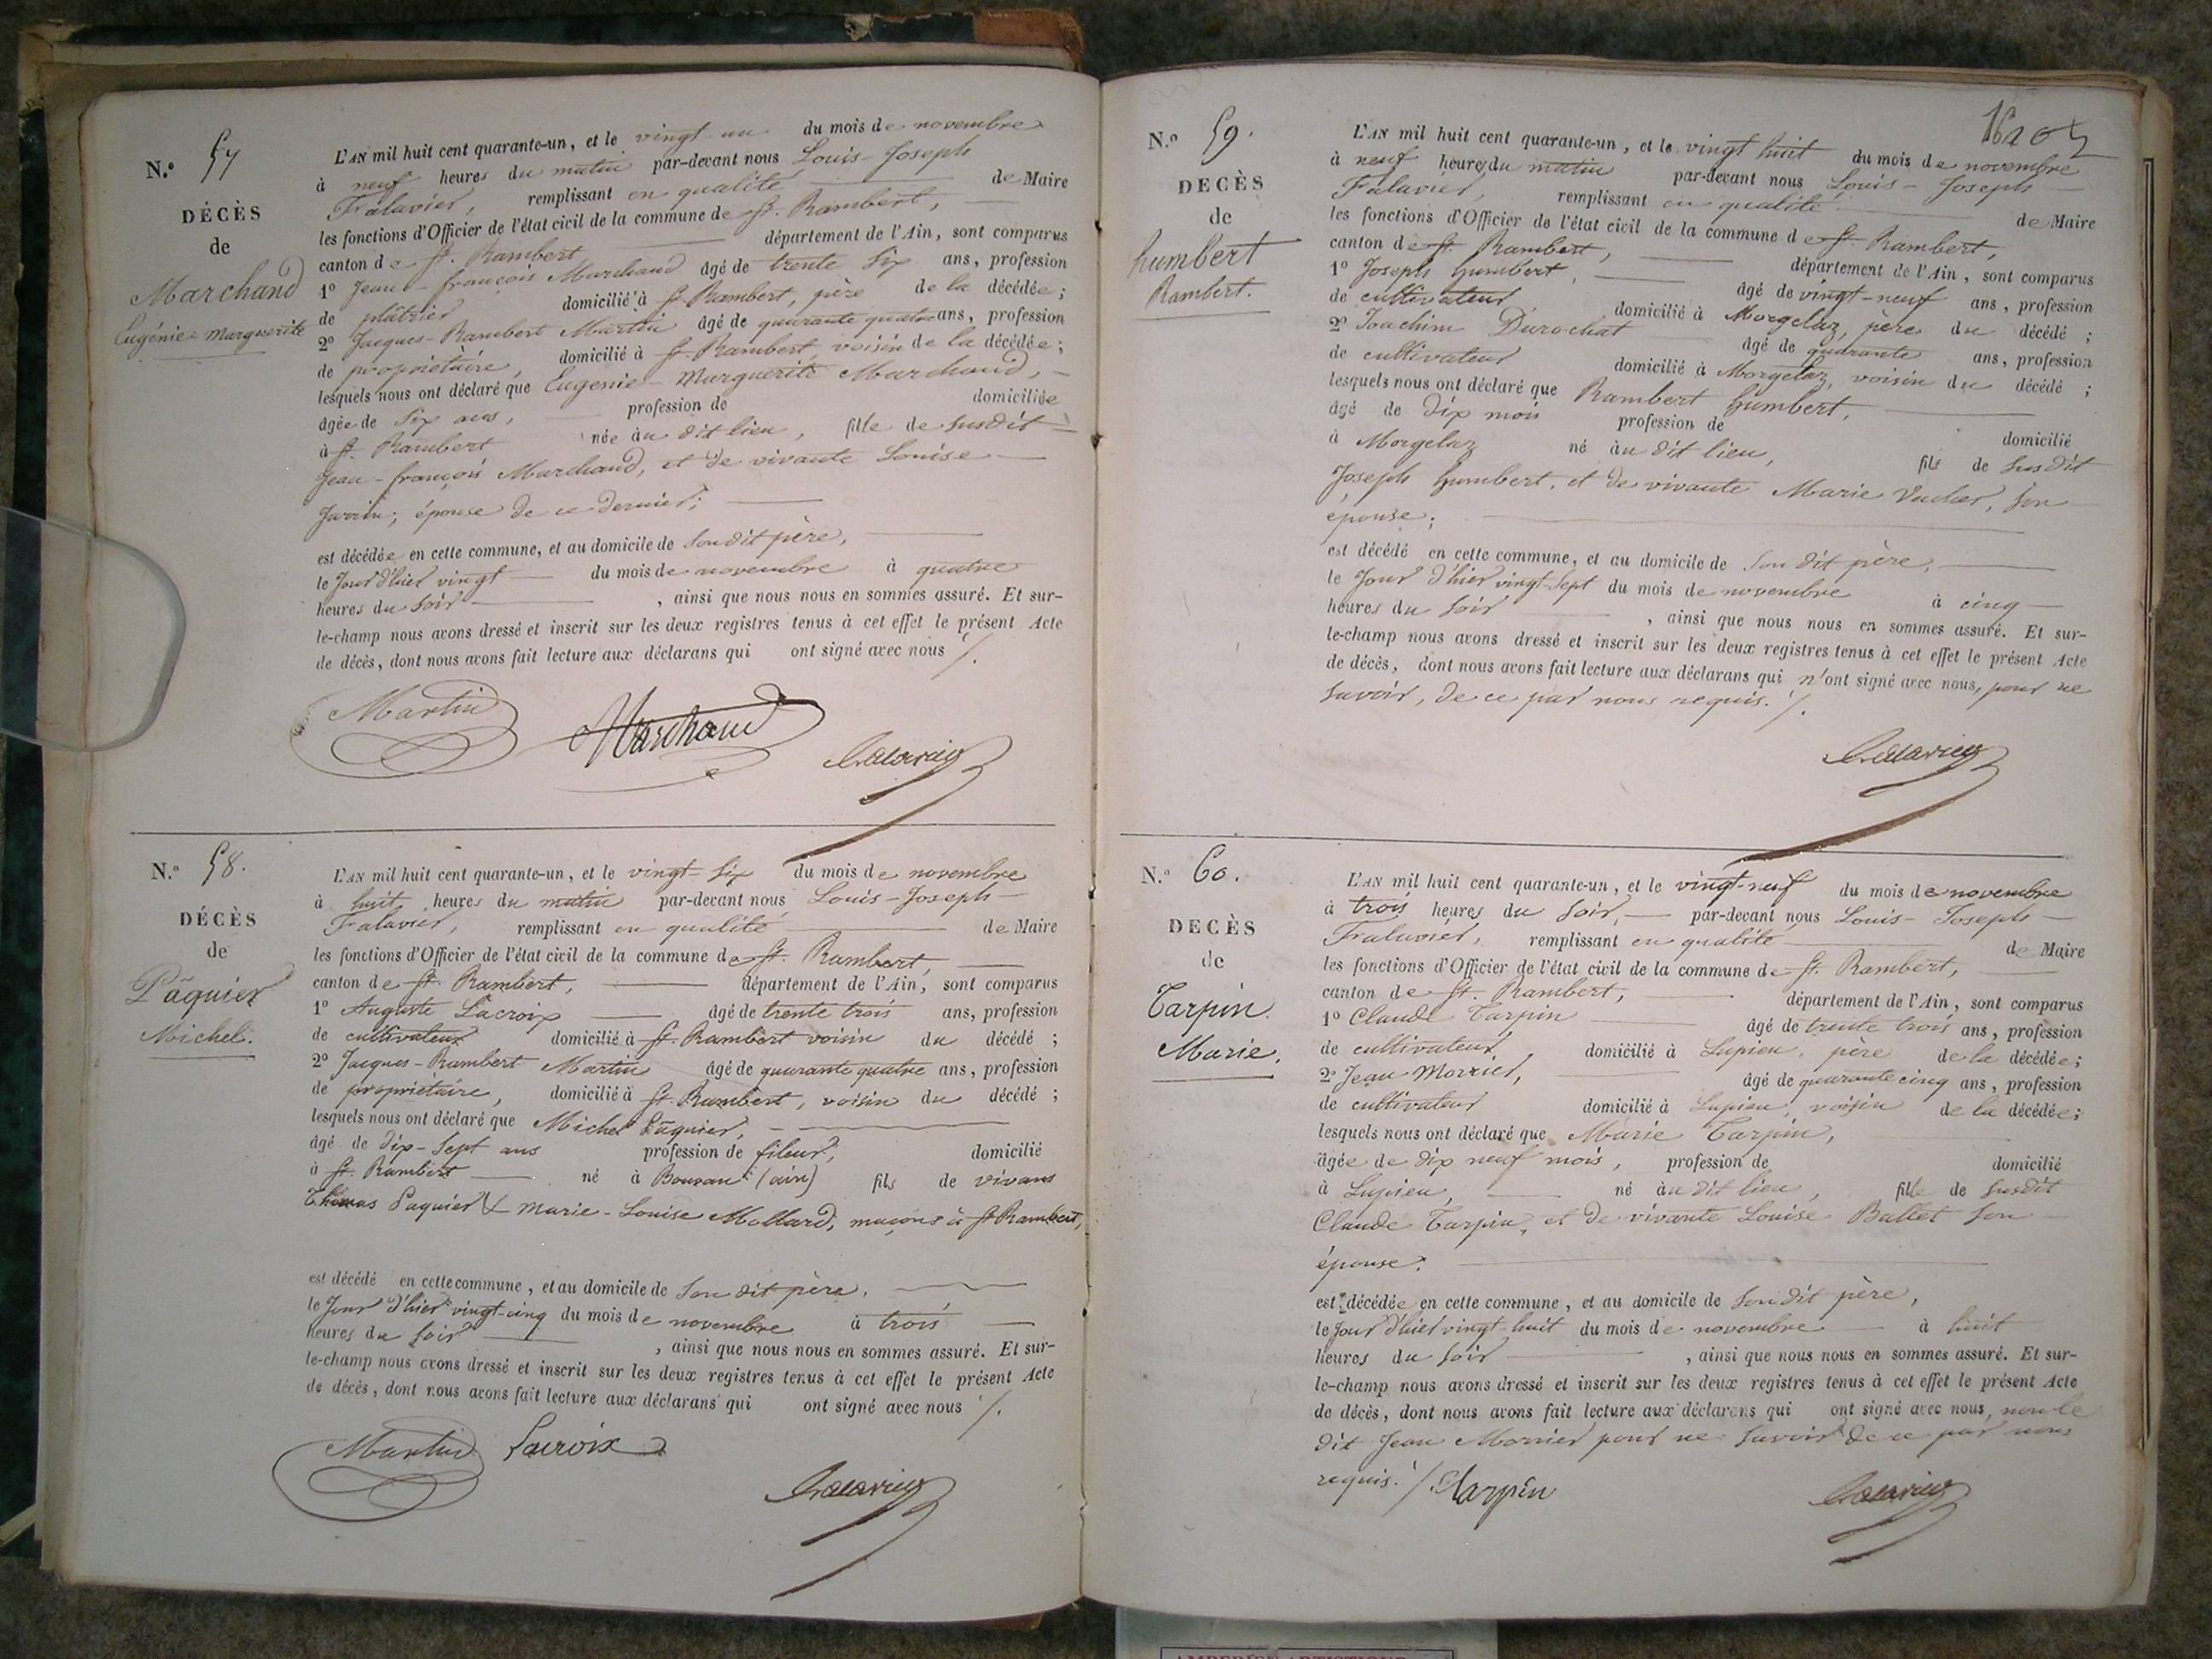 N.o 57
DÉCÈS
de
Marchand
Eugénie-Marguerite
L'AN mil huit cent quarante-un, et le vingt-un du mois de novembre
à neuf heures du matin par-devant nous Louis-Joseph
Falavier, remplissant en qualité de Maire
les fonctions d'Officier de l'état civil de la commune de St. Rambert,
canton de St. Rambert département de l'Ain, sont comparus
1o Jean-françois Marchand âgé de trente six ans, profession
de plâtrier domicilié à St. Rambert, père de la décédée;
2o Jacques-Rambert Martin âgé de quarante quatre ans, profession
de propriétaire, domicilié à St. Rambert, voisin de la décédée;
lesquels nous ont déclaré que Eugenie-Marguerite Marchand,
âgée de six ans, profession de domiciliée
à St. Rambert née au dit lieu, fille de susdit
Jean-françois Marchand, et de vivante Louise
épouse de ce dernier;
est décédée en cette commune, et au domicile de son dit père,
le jour d'hier vingt du mois de novembre à quatre
heures du soir, ainsi que nous nous en sommes assuré. Et sur-
le-champ nous avons dressé et inscrit sur les deux registres tenus à cet effet le présent Acte
de décès, dont nous avons fait lecture aux déclarans qui ont signé avec nous /.
Martin Marchand Falavier
N.o 58.
DÉCÈS
de
Pâquier
Michel.
L'AN mil huit cent quarante-un, et le vingt-six du mois de novembre
à huit heures du matin par-devant nous Louis-Joseph
Falavier, remplissant en qualité de Maire
les fonctions d'Officier de l'état civil de la commune de St. Rambert,
canton de St. Rambert, département de l'Ain, sont comparus
1o Auguste Lacroix âgé de trente trois ans, profession
de cultivateur domicilié à St. Rambert voisin du décédé;
2o Jacques-Rambert Martin âgé de quarante quatre ans, profession
de propriétaire, domicilié à St. Rambert, voisin du décédé;
lesquels nous ont déclaré que Michel Pâquier,
âgé de dix-sept ans profession de fileur, domicilié
à St. Rambert né à (ain) fils de vivans
Thomas Paquier & Marie-Louise Mollard, maçons à St. Rambert,
est décédé en cette commune, et au domicile de son dit père,
le jour d'hier vingt-cinq du mois de novembre à trois
heures du soir, ainsi que nous nous en sommes assuré. Et sur-
le-champ nous avons dressé et inscrit sur les deux registres tenus à cet effet le présent Acte
de décès, dont nous avons fait lecture aux déclarans qui ont signé avec nous /.
Martin Lacroix Falavier
N.o 59.
DECÈS
de
humbert
Rambert.
L'AN mil huit cent quarante-un, et le vingt huit du mois de novembre
à neuf heures du matin par-devant nous Louis-Joseph
Falavier, remplissant en qualité de Maire
les fonctions d'Officier de l'état civil de la commune de St. Rambert,
canton de St. Rambert, département de l'Ain, sont comparus
1o Joseph humbert, âgé de vingt-neuf ans, profession
de cultivateur domicilié à Morgelaz, père du décédé;
2o Joachim Durochat âgé de quarante ans, profession
de cultivateur domicilié à Morgelaz, voisin du décédé;
lesquels nous ont déclaré que Rambert humbert,
âgé de dix mois profession de domicilié
à Morgelaz né au dit lieu, fils de susdit
Joseph humbert, et de vivante Marie son
épouse;
est décédé en cette commune, et au domicile de son dit père,
le jour d'hier vingt-sept du mois de novembre à cinq
heures du soir, ainsi que nous nous en sommes assuré. Et sur-
le-champ nous avons dressé et inscrit sur les deux registres tenus à cet effet le présent Acte
de décès, dont nous avons fait lecture aux déclarans qui n'ont signé avec nous, pour ne
savoir, de ce par nous requis. /.
Falavier
N.o 60.
DECÈS
de
Tarpin.
Marie.
L'AN mil huit cent quarante-un, et le vingt-neuf du mois de novembre
à trois heures du soir, par-devant nous Louis-Joseph
Falavier, remplissant en qualité de Maire
les fonctions d'Officier de l'état civil de la commune de St. Rambert,
canton de St. Rambert, département de l'Ain, sont comparus
1o Claude Tarpin âgé de trente trois ans, profession
de cultivateur, domicilié à Lupieu, père de la décédée;
2o Jean Morrier, âgé de quarante cinq ans, profession
de cultivateur domicilié à Lupieu, voisin de la décédée;
lesquels nous ont déclaré que Marie Tarpin,
âgée de dix neuf mois, profession de domicilié
à Lupieu, né au dit lieu, fille de susdit
Claude Tarpin, et de vivante Louise Ballet son
épouse.
est décédée en cette commune, et au domicile de son dit père,
le jour d'hier vingt-huit du mois de novembre à huit
heures du soir, ainsi que nous nous en sommes assuré. Et sur-
le-champ nous avons dressé et inscrit sur les deux registres tenus à cet effet le présent Acte
de décès, dont nous avons fait lecture aux déclarans qui ont signé avec nous, non le
dit Jean Morrier pour ne savoir de ce par nous
requis. /. CTarpin Falavier